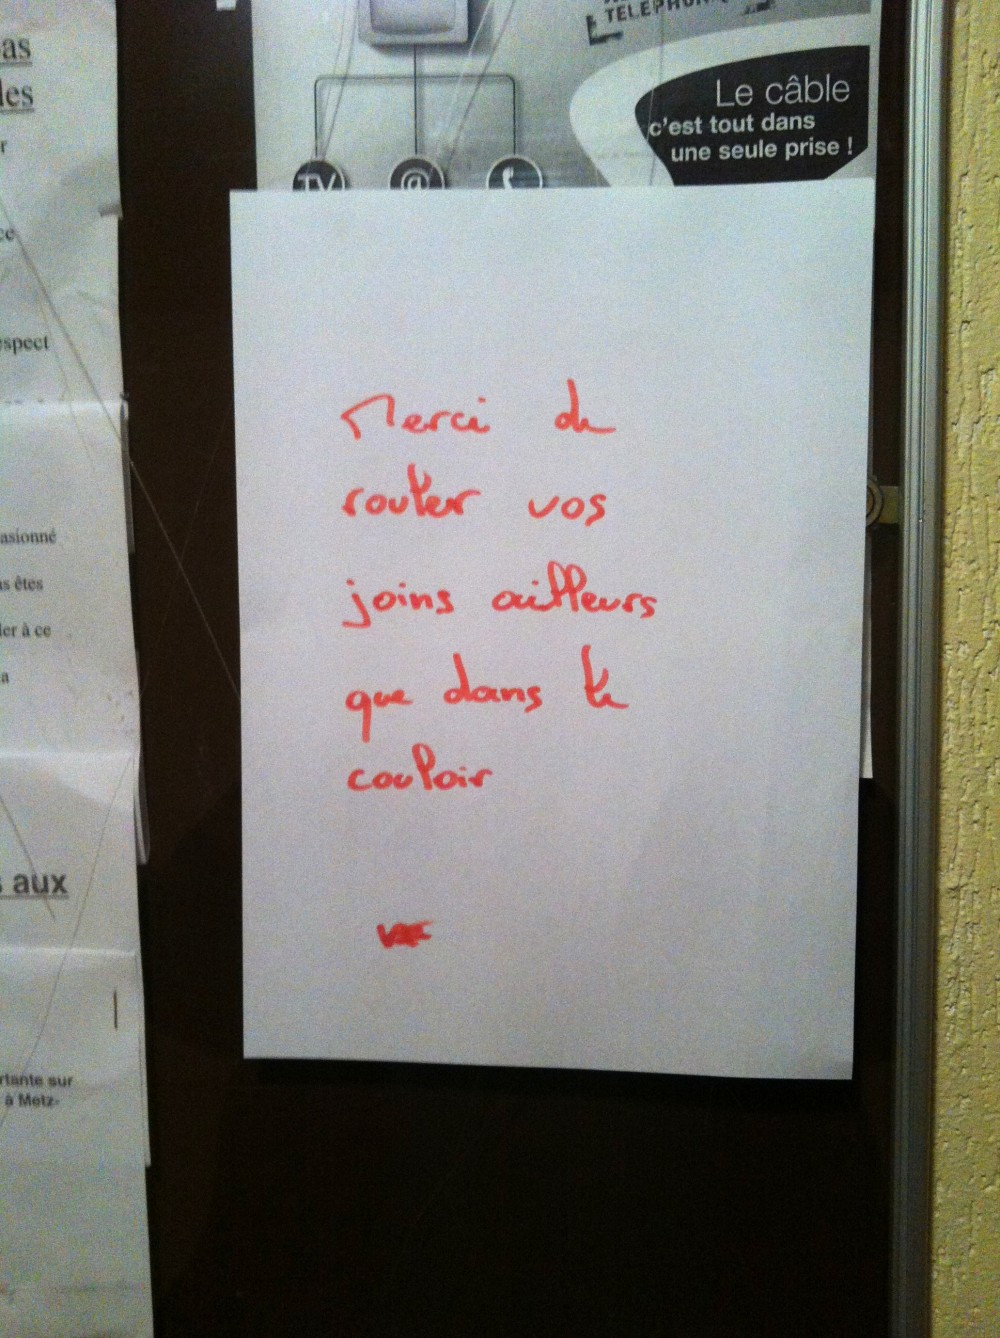 as
les
r
ce
espect
asionné
s êtes
ler à ce
a
s aux
rtante sur
à Metz-
TELEPHONIQ
Le câble
c'est tout dans
une seule prise !
TV @
Merci de
router vos
joins ailleurs
que dans le
couloir